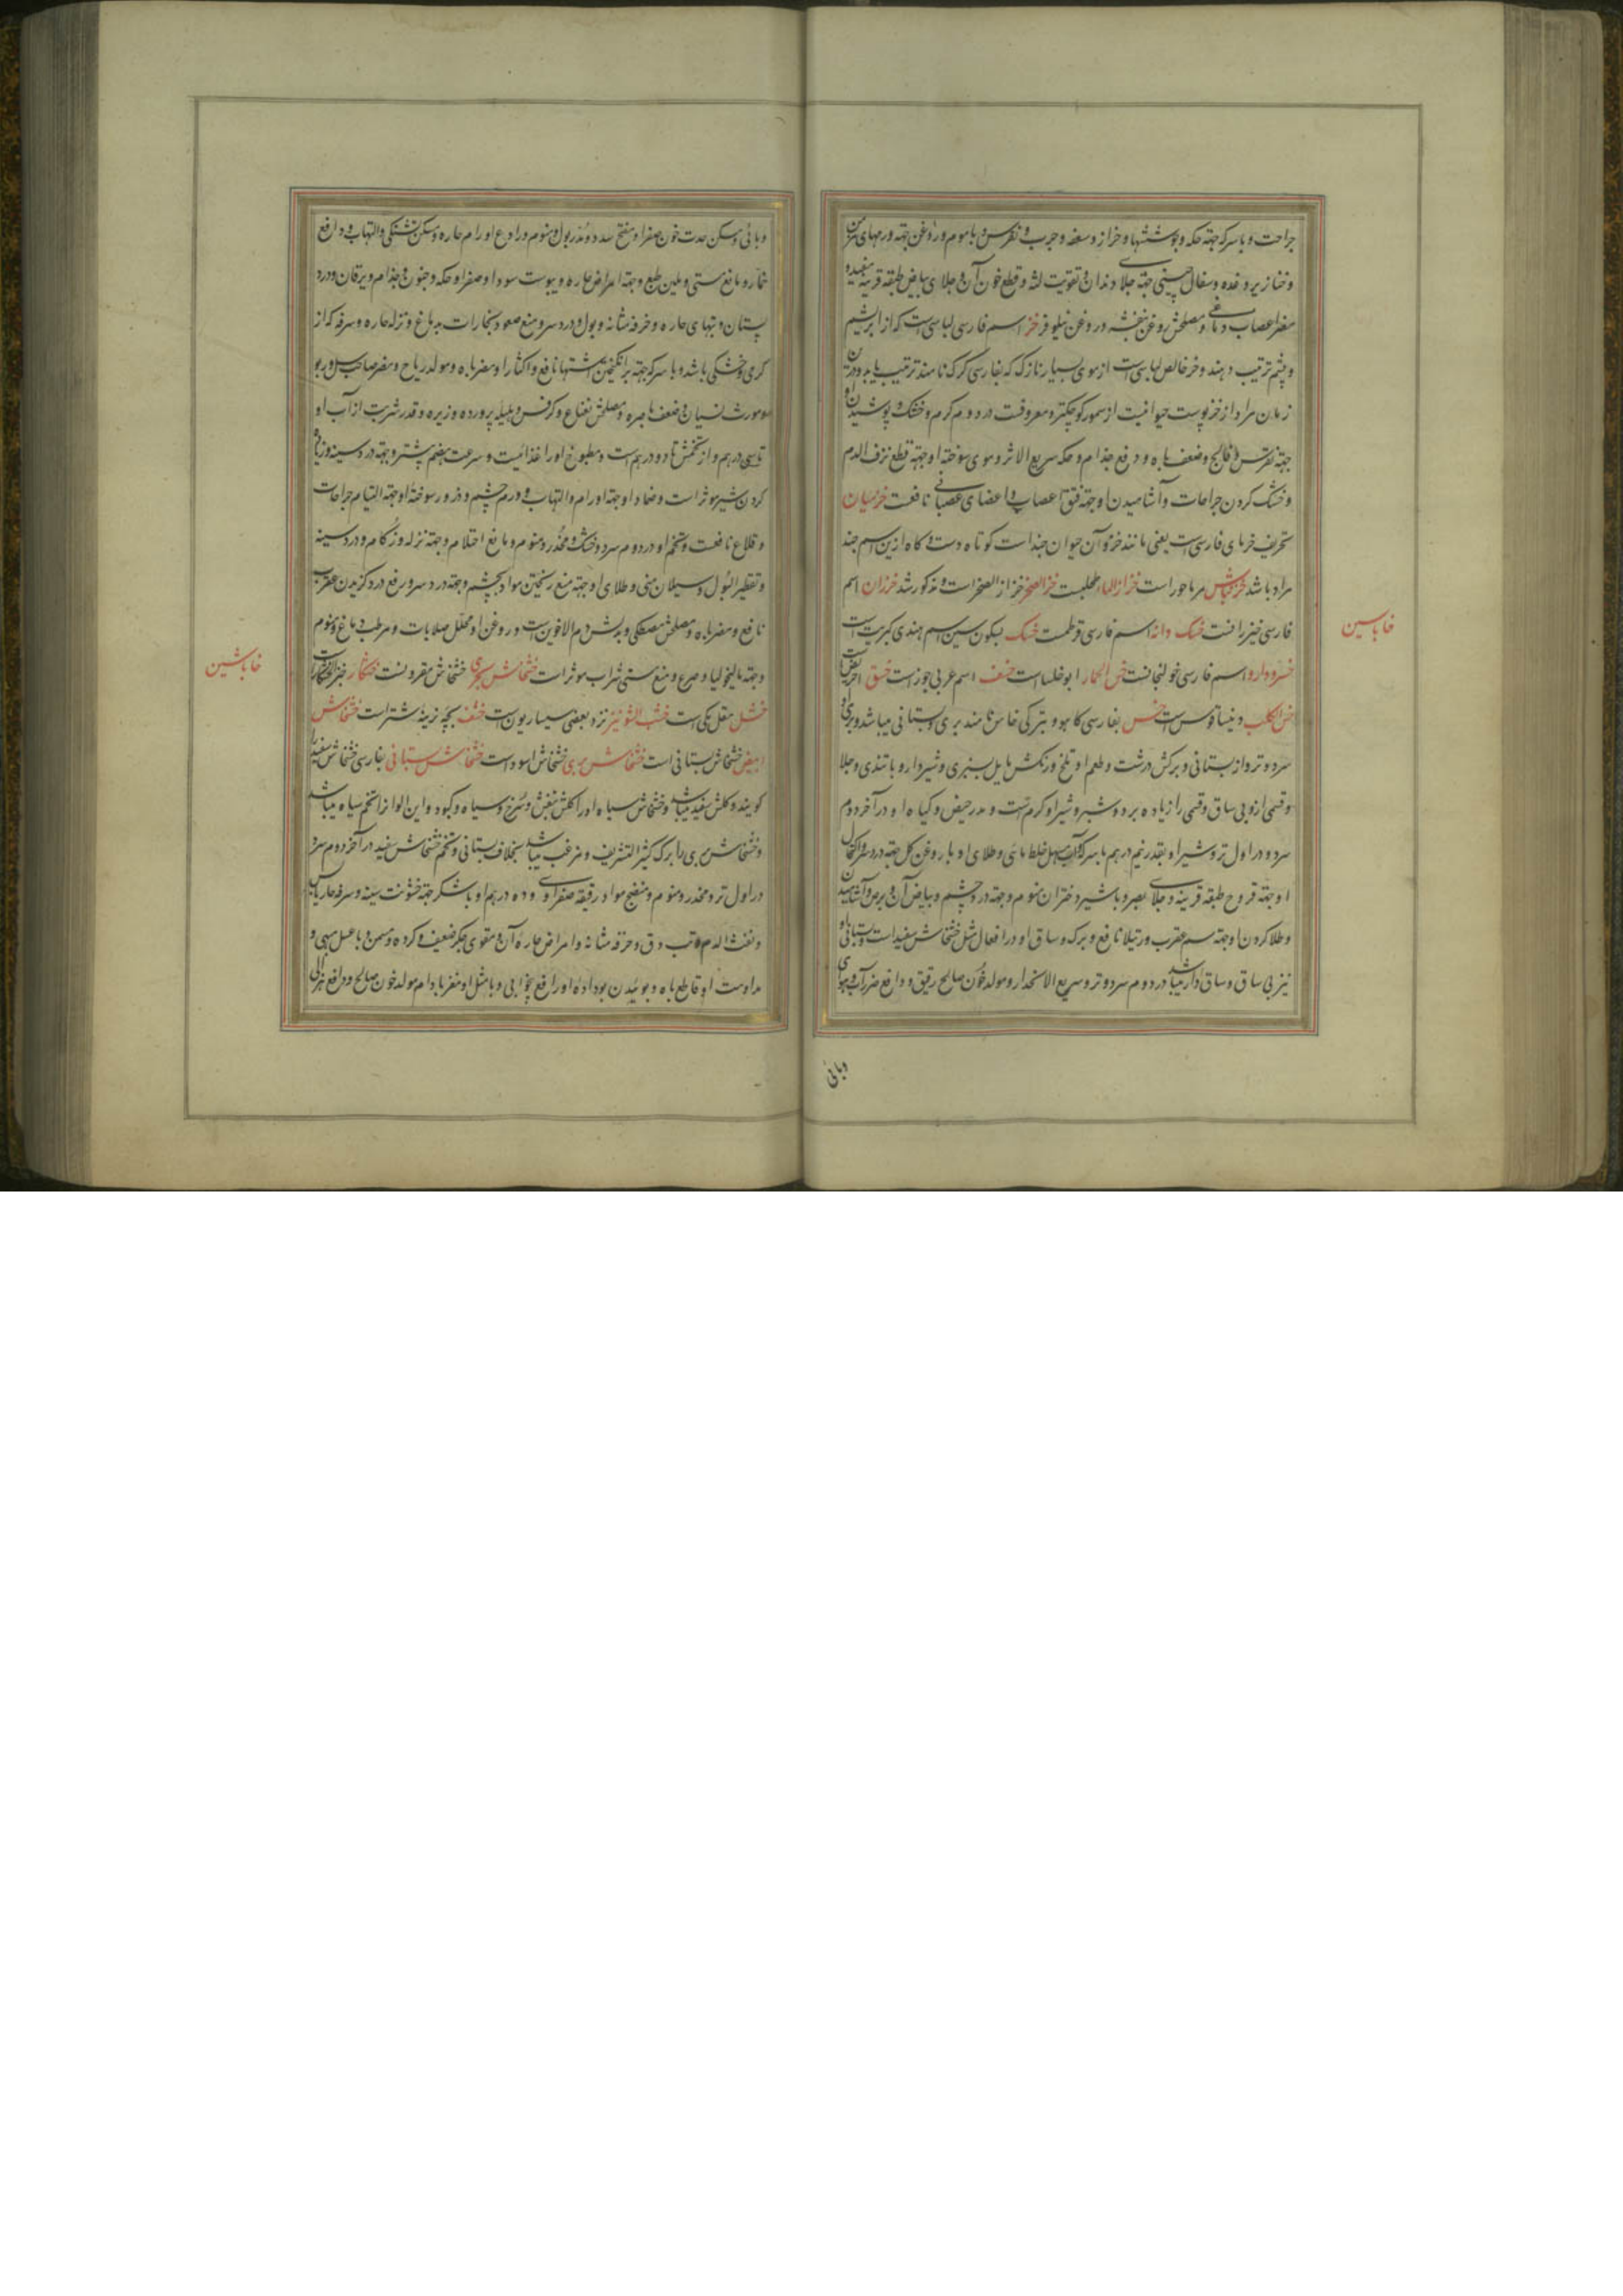 جراحت و با سرکه جهة حکه و جوششها و خراز و سعفه و جرب و نقرس و با موم و روغن جهة ورمهای مزمن
و خنازیر و غده و سفال چینی جهة جلاء دندان و تقویت لثه و قطع خون آن و جلای بیاض طبقه قرنیه مفید و
مضر اعصاب دماغی و مصلحش روغن بنفشه و روغن نیلوفر خز اسم فارسی لباسی است که از ابریشم
و پشم ترتیب دهند و خز خالص لباسی است از موی بسیار نازک که بفارسی کرک نامند ترتیب یابد و درین
زمان مراد از خز پوست حیوانیست از سمور کوچکتر و معروفست در دوم گرم و خشک و پوشیدن او
جهة نقرس و فالج و ضعف باه و دفع جذام و حکه سریع الاثر و موی سوختۀ او جهة قطع نزف الدم
و خشک کردن جراحات و آشامیدن او جهة فتق اعصاب و اعضای عصبانی نافعست خزمیان
تحریف خزمای فارسی است یعنی مانند خز و آن حیوان جند است کوتاه دست و گاه ازین اسم جند
مراد باشد مرماحور است خزاز الماء طحلبست خز الصخر خزاز الصخر است و مذکور شد خزران اسم
فارسی خیزرانست خسک دانه اسم فارسی قرطمست خسک بسکون سین اسم هندی است
خسرودارو اسم فارسی خولنجانست خس الحمار ابو خلسا است خسف اسم عربی جوز است خسق
خس الکلب دینساقوس است خس بفارسی کاهو و بترکی خاس نامند بری و بستانی میباشد و بری
سرد و تر از بستانی و برگش درشت و طعم او تلخ و رنگش مایل بسبزی و شیردار و با تندی و جلا
و قسمی ازو بی ساق و قسمی را زیاده برد و شبر و شیر او گرم است و مدر حیض و گیاه او در آخر دوم
سرد و در اول تر و شیر او بقدر نیم درهم با سرکه و آب مسهل خلط مائی و طلای او با روغن گل جهة درد سر و اکتحال
او جهة قروح طبقه قرنیه و جلای بصر و با شیر دختران منوم و جهة درد چشم و بیاض آن و برص و آشامیدن
و طلا کردن او جهة سم عقرب و رتیلا نافع و برگ و ساق او در افعال مثل خشخاش سفید است و بستانی او
نیز بی ساق و ساق دار میباشد در دوم سرد و تر و سریع الانحدار و مولد خون صالح رقیق و دافع ضرر آب و هوای
وبائی
خاباسین
وبائی و مسکن حدت خون و صفرا و مفتح سدد و مدر بول و منوم و رادع اورام حاره و مسکن تشنگی و التهاب و دافع
خمار و مانع مستی و ملین طبع و جهة امراض حاره و یبوست سودا و صفرا و حکه و جنون و جذام و یرقان و درد
پستان و تبهای حاره و حرقه مثانه و بول و درد سر و منع صعود بخارات بدماغ و نزله حاره و سرفه که از
گرمی و خشکی باشد و با سرکه جهة برانگیختن اشتها نافع و اکثار او مضر باه و مولد ریاح و مضر صاحب سل و ربو
و مورث نسیان و ضعف باصره و مصلحش نعناع و کرفس و هلیله پرورده و زیره و قدر شربت از آب او
تا سی درهم و از تخمش تا دو درهم است و مطبوخ او را غذائیت و سرعت هضم بیشتر و جهة درد سینه و زیاده
کردن شیر موثر است و ضماد او جهة اورام و التهاب و ورم چشم و ذرور سوختۀ او جهة التیام جراحات
و قلاع نافعست و تخم او در دوم سرد و خشک و مخدر و منوم و مانع احتلام و جهة نزله و زکام و درد سینه
و تقطیر البول و سیلان منی و طلای او جهة منع ریختن مواد بچشم و جهة درد سر و رفع درد گزیدن عقرب
نافع و مضر باه و مصلحش مصطکی و بدلش دم الاخوین است و روغن او محلل صلابات و مرطب دماغ و منوم
و جهة مالیخولیا و صرع و منع مستی شراب موثر است خشخاش بحری خشخاش مقرونست خشکار خبز الخشکار است
خشل مقل مکی است خشب الشونیز نزد بعضی میساریون است خشف بچه نرینه شتر است خشخاش
ابیض خشخاش بستانی است خشخاش بری خشخاش اسود است خشخاش بستانی بفارسی خشخاش سفید
گویند و گلش سفید میباشد و خشخاش سیاه را گلش بنفش و سرخ و سیاه و کبود و این الوان را تخم سیاه میباشد
و خشخاش بری را برگ کثیر التشریف و مزغب میباشد بخلاف بستانی و تخم خشخاش سفید در آخر دوم سرد
در اول تر و مخدر و منوم و منضج مواد رقیقه صفراوی و ده درهم او با شکر جهة خشونت سینه و سرفه حار یابس
و نفث الدم و تب دق و حرقه مثانه و امراض حاره آن و مقوی جگر ضعیف و گرده و مسمن و با عسل مبهی و
مداومت او قاطع باه و بوئیدن بو داده او رافع بیخوابی و با مثل او مغز بادام مولد خون صالح و دافع هزال
خاباشین